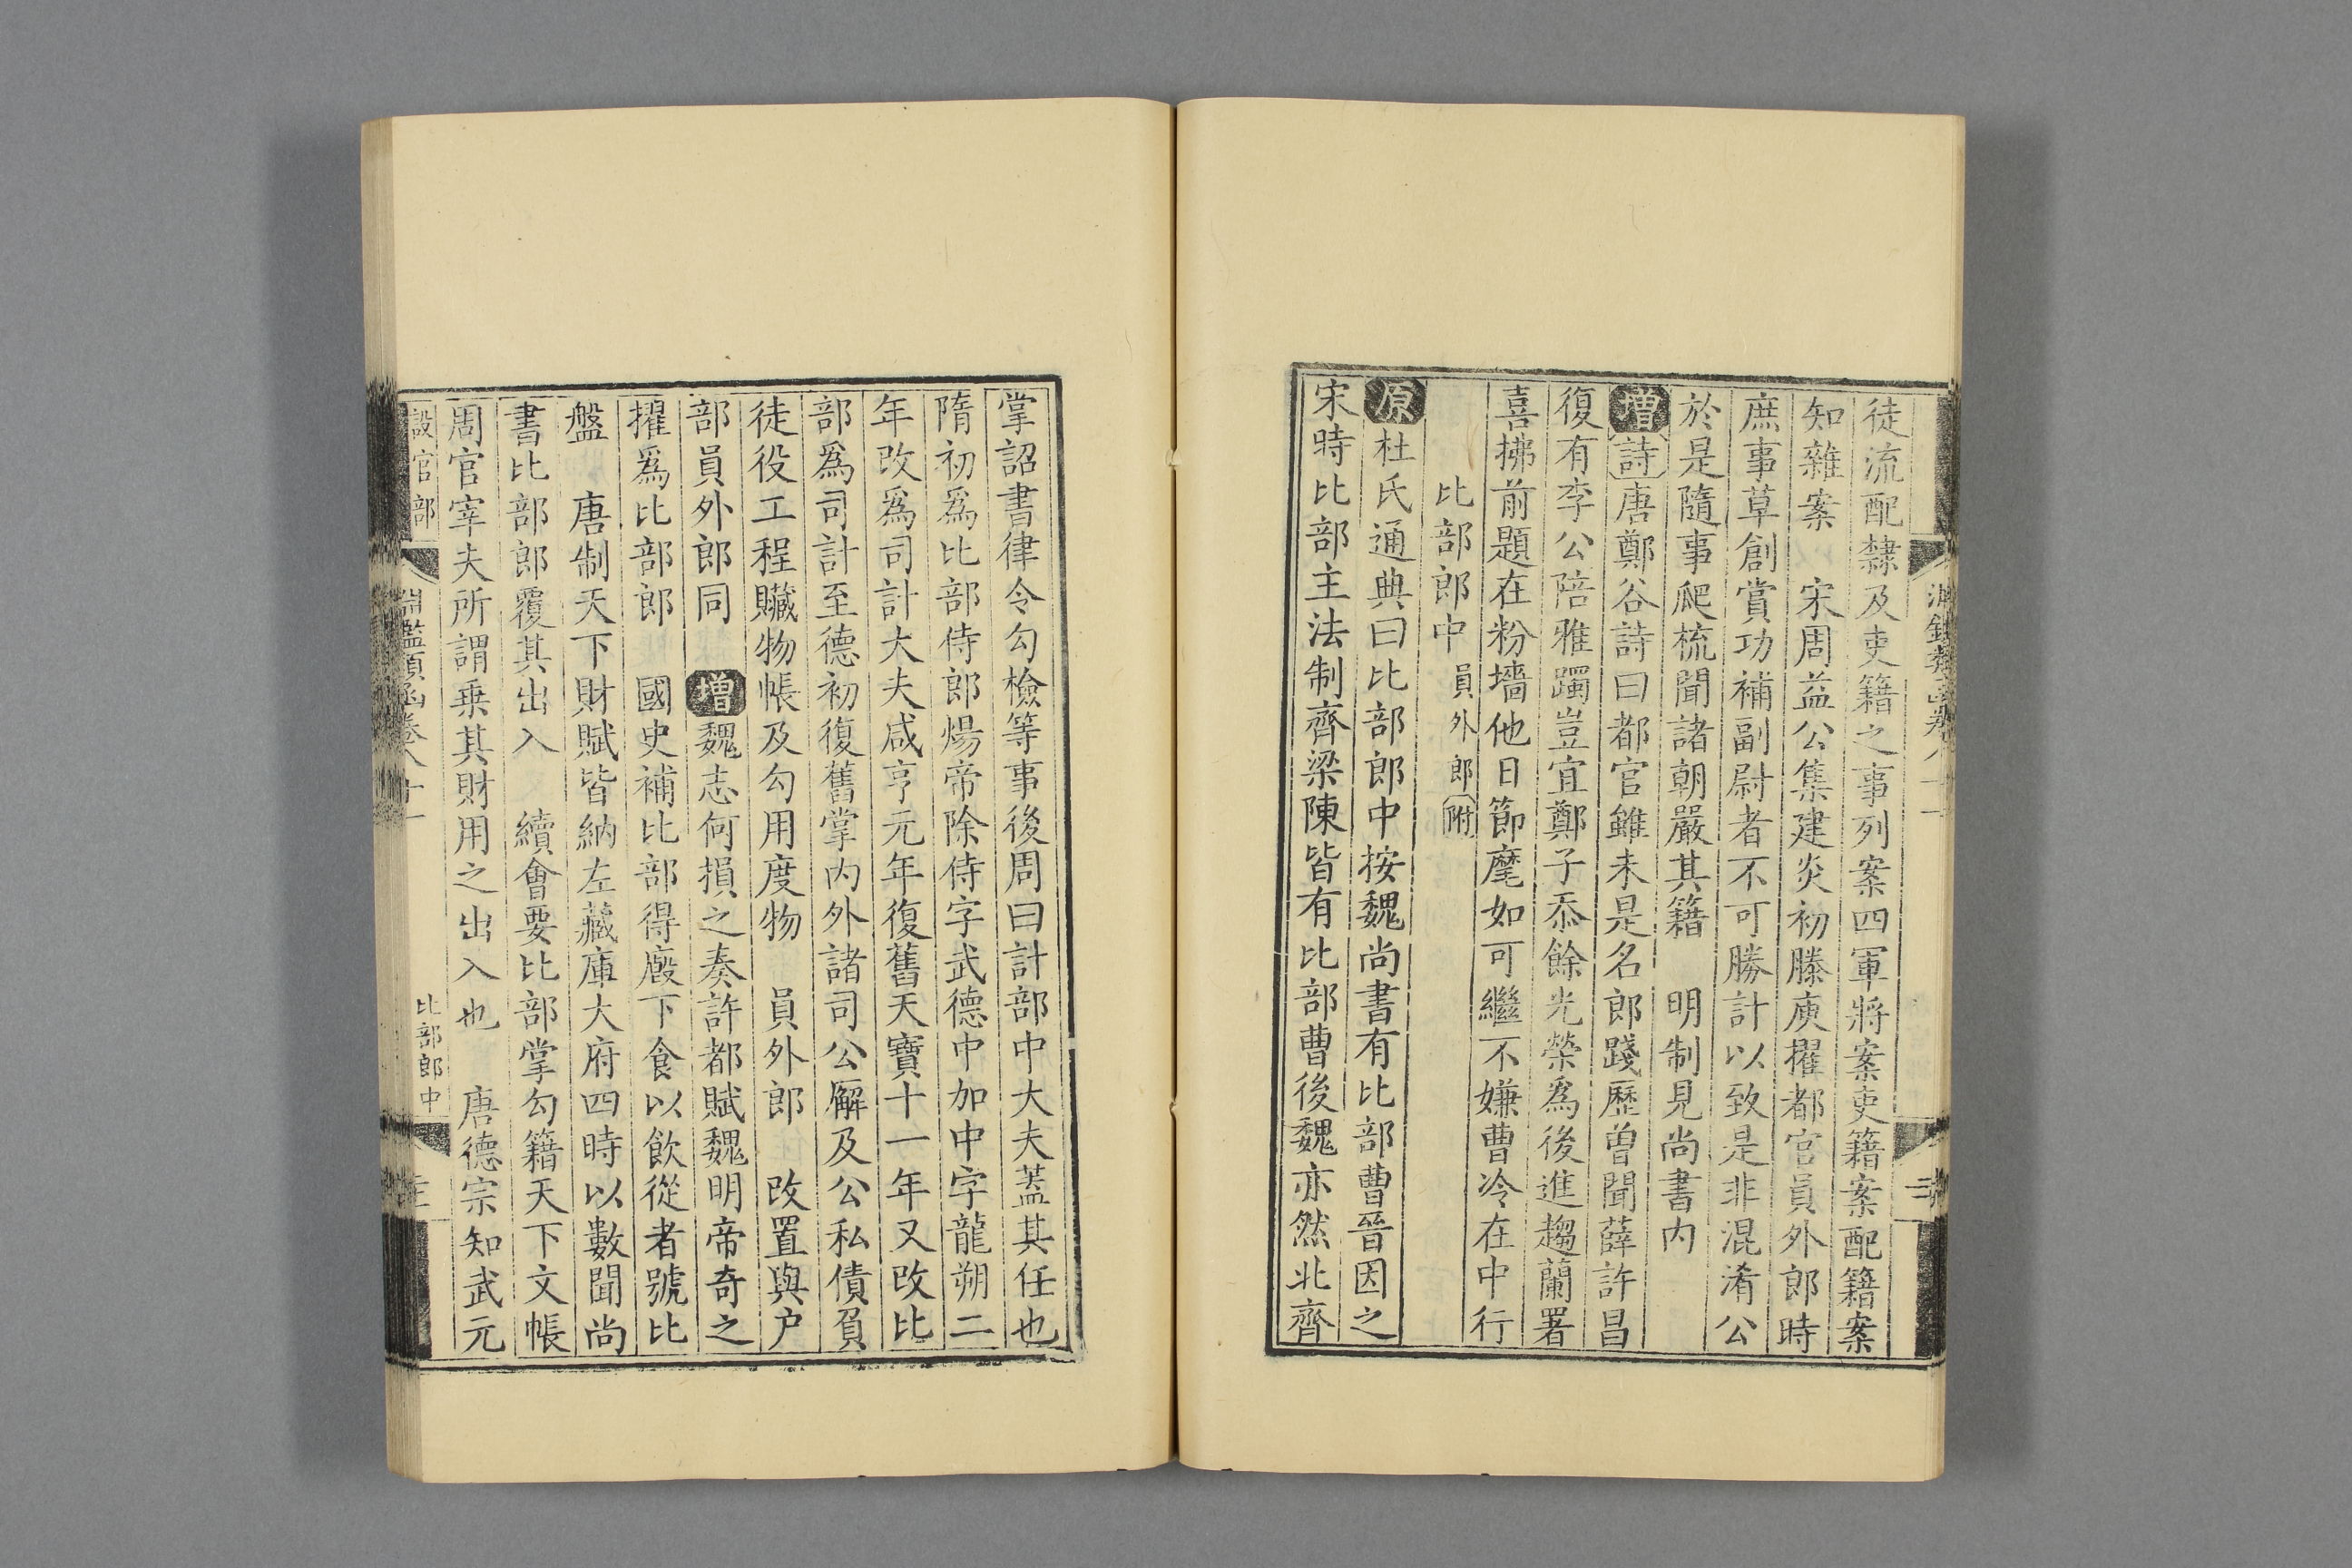 徒流配隸及吏籍之事列案四軍將案吏籍案配籍案
知雜案 宋周益公集建炎初滕庾擢都官員外郎時
庶事草創賞功補副尉者不可勝計以致是非混淆公
於是隨事爬梳聞諸朝嚴其籍 明制見尚書內
增詩唐鄭谷詩曰都官雖未是名郎踐歷曾聞薛許昌
復有李公陪雅躅豈宜鄭子忝餘光榮爲後進趨蘭署
喜拂前題在粉墻他日節麾如可繼不嫌曹冷在中行
比部郎中員外郎附
原杜氏通典曰比部郎中按魏尚書有比部曹晉因之
宋時比部主法制齊梁陳皆有比部曹後魏亦然北齊
掌詔書律令勾檢等事後周曰計部中大夫蓋其任也
隋初爲比部侍郎煬帝除侍字武德中加中字龍朔二
年改爲司計大夫咸亨元年復舊天寶十一年又改比
部爲司計至德初復舊掌內外諸司公廨及公私債負
徒役工程贓物帳及勾用度物 員外郎 改置與户
部員外郎同 增魏志何損之奏許都賦魏明帝奇之
擢爲比部郎 國史補比部得廊下食以飲從者號比
盤 唐制天下財賦皆納左藏庫大府四時以數聞尚
書比部郎覆其出入 續會要比部掌勾籍天下文帳
周官宰夫所謂乗其財用之出入也 唐德宗知武元
設官部
淵鑑類函卷八十一
比部郎中